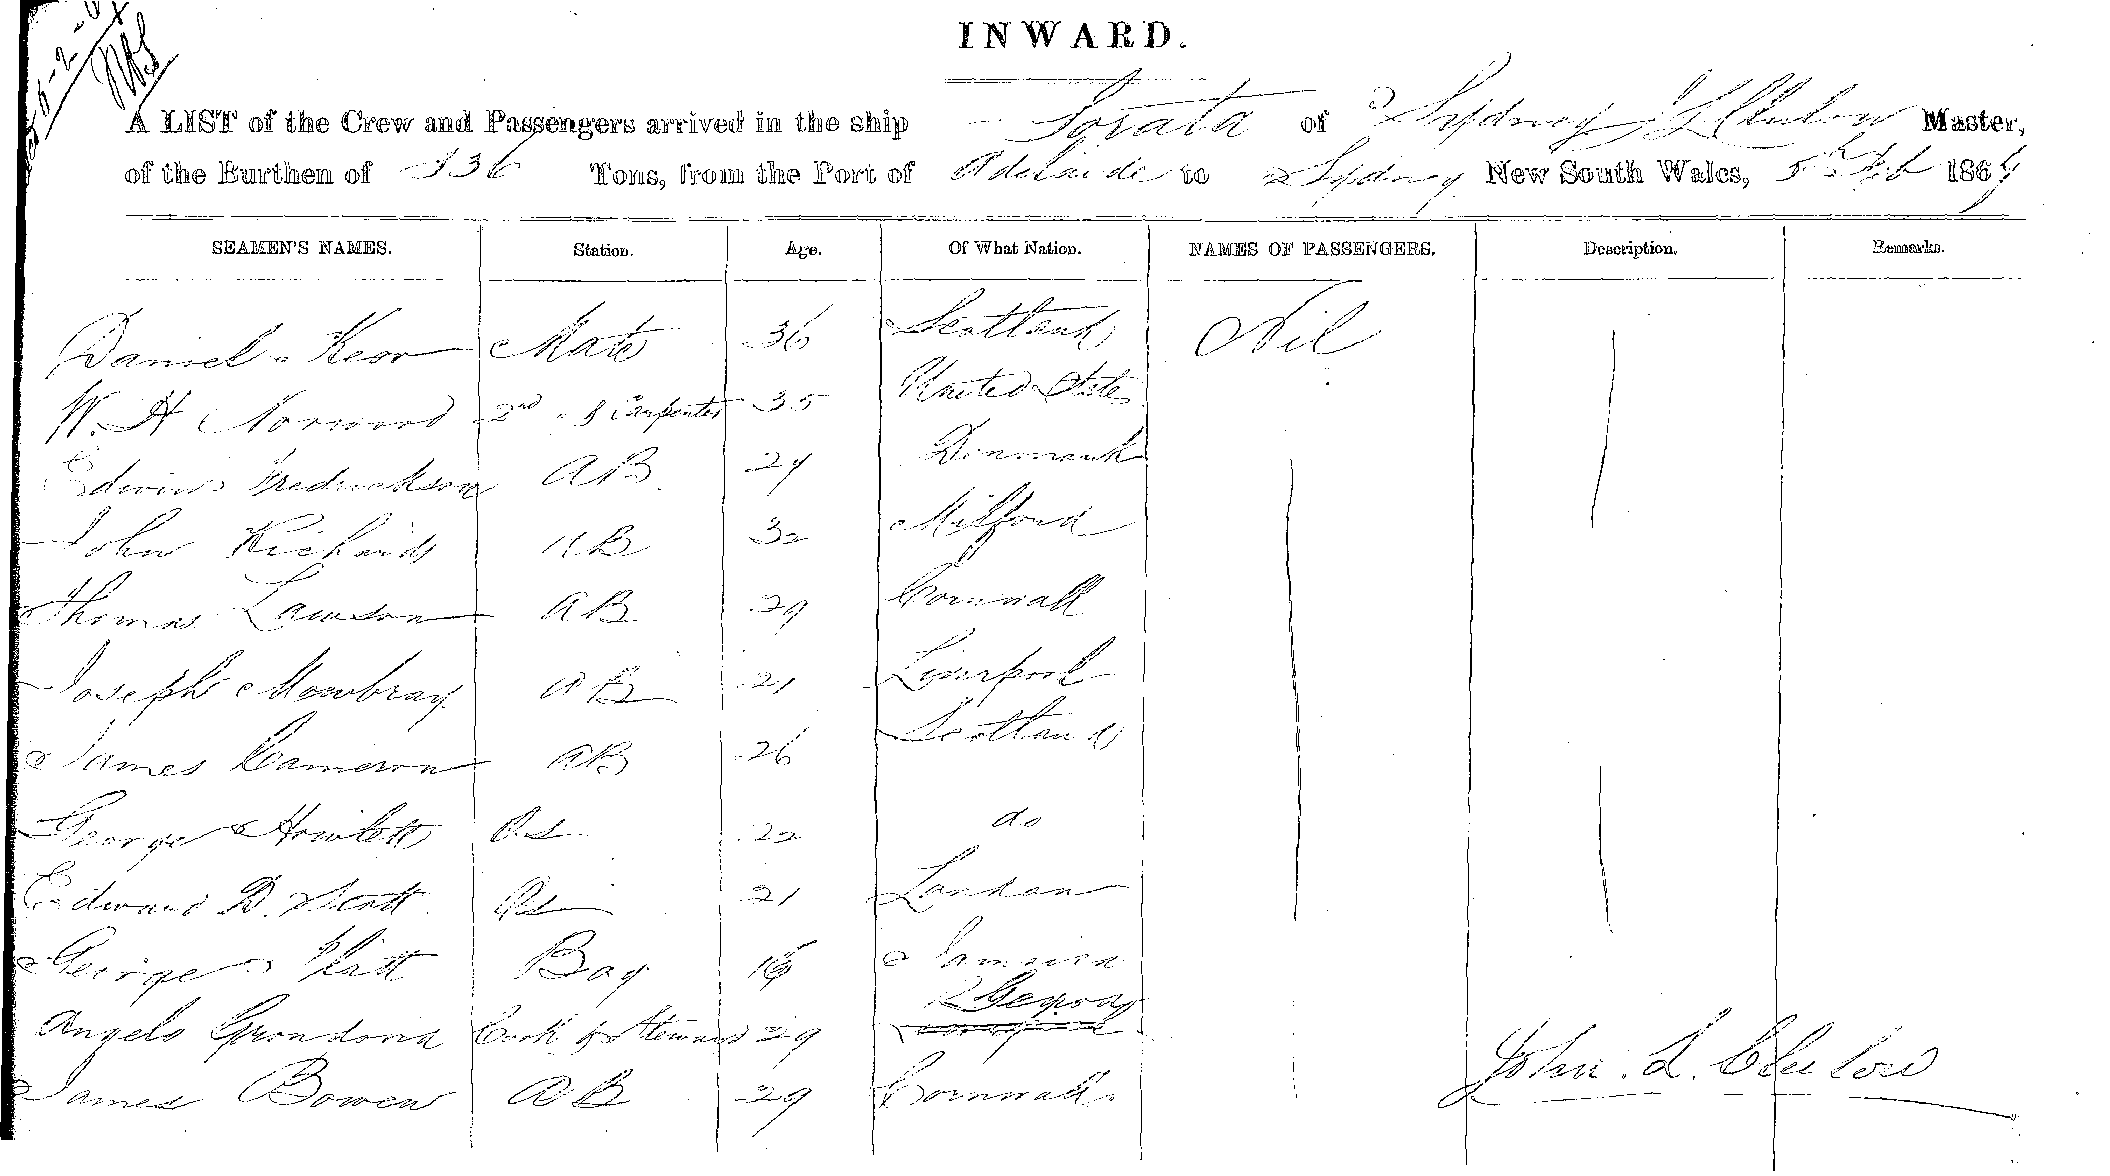 INWARD.
A LIST of the Crew and Passengers arrived in the ship Sorata of Sydney, J L Clulow Master,
of the Burthen of 336 Tons, from the Port of Adelaide to Sydney New South Wales, 5th Feb 1864
SEAMEN'S NAMES. Station. Age. Of What Nation. NAMES OF PASSENGERS. Description. Remarks.
Daniel Kerr Mate 36 Scotland Nil
W. H Norwood 2nd " & Carpenter 35 United State
Edwin Fredrickson AB 24 Denmark
John Richards AB 32 Milford
Thomas Lawson AB 29 Cornwall
Joseph Mowbray AB 21 Liverpool
James Cameron AB 26 Scotland
George Howlett OS 22 do
Edward D. Scott OS 21 London
George Platt Boy Jamaica
Angelo Grondona Cook & Steward 29
James Bowen AB 29 Cornwall
John. L. Clulow